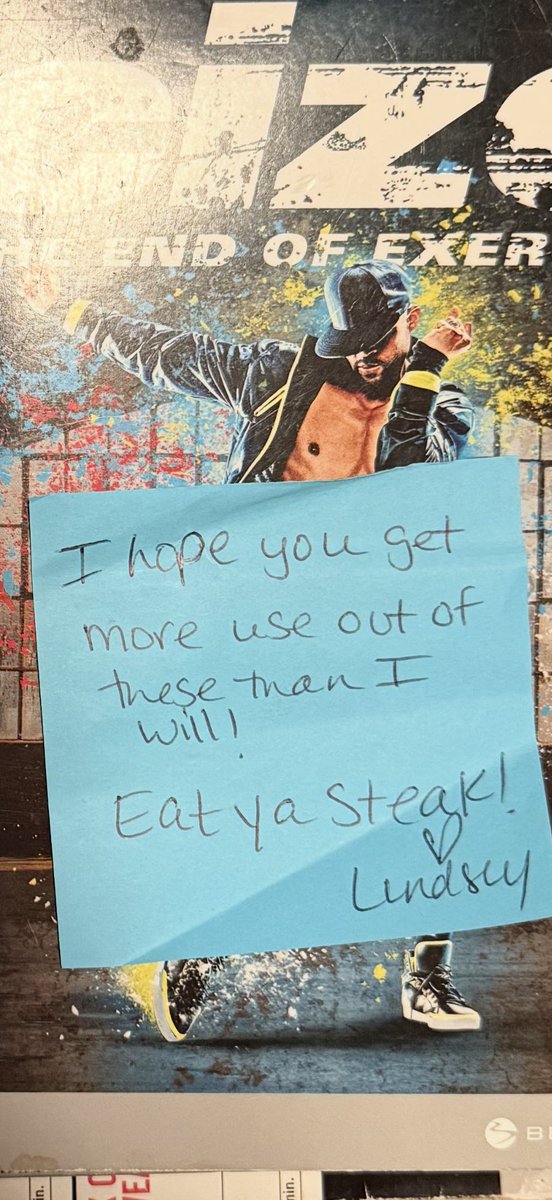 eiz
HE END OF EXER
I hope you get
more use out of
these than I
will!
Eat ya steak!
Lindsey
B
in.
min.